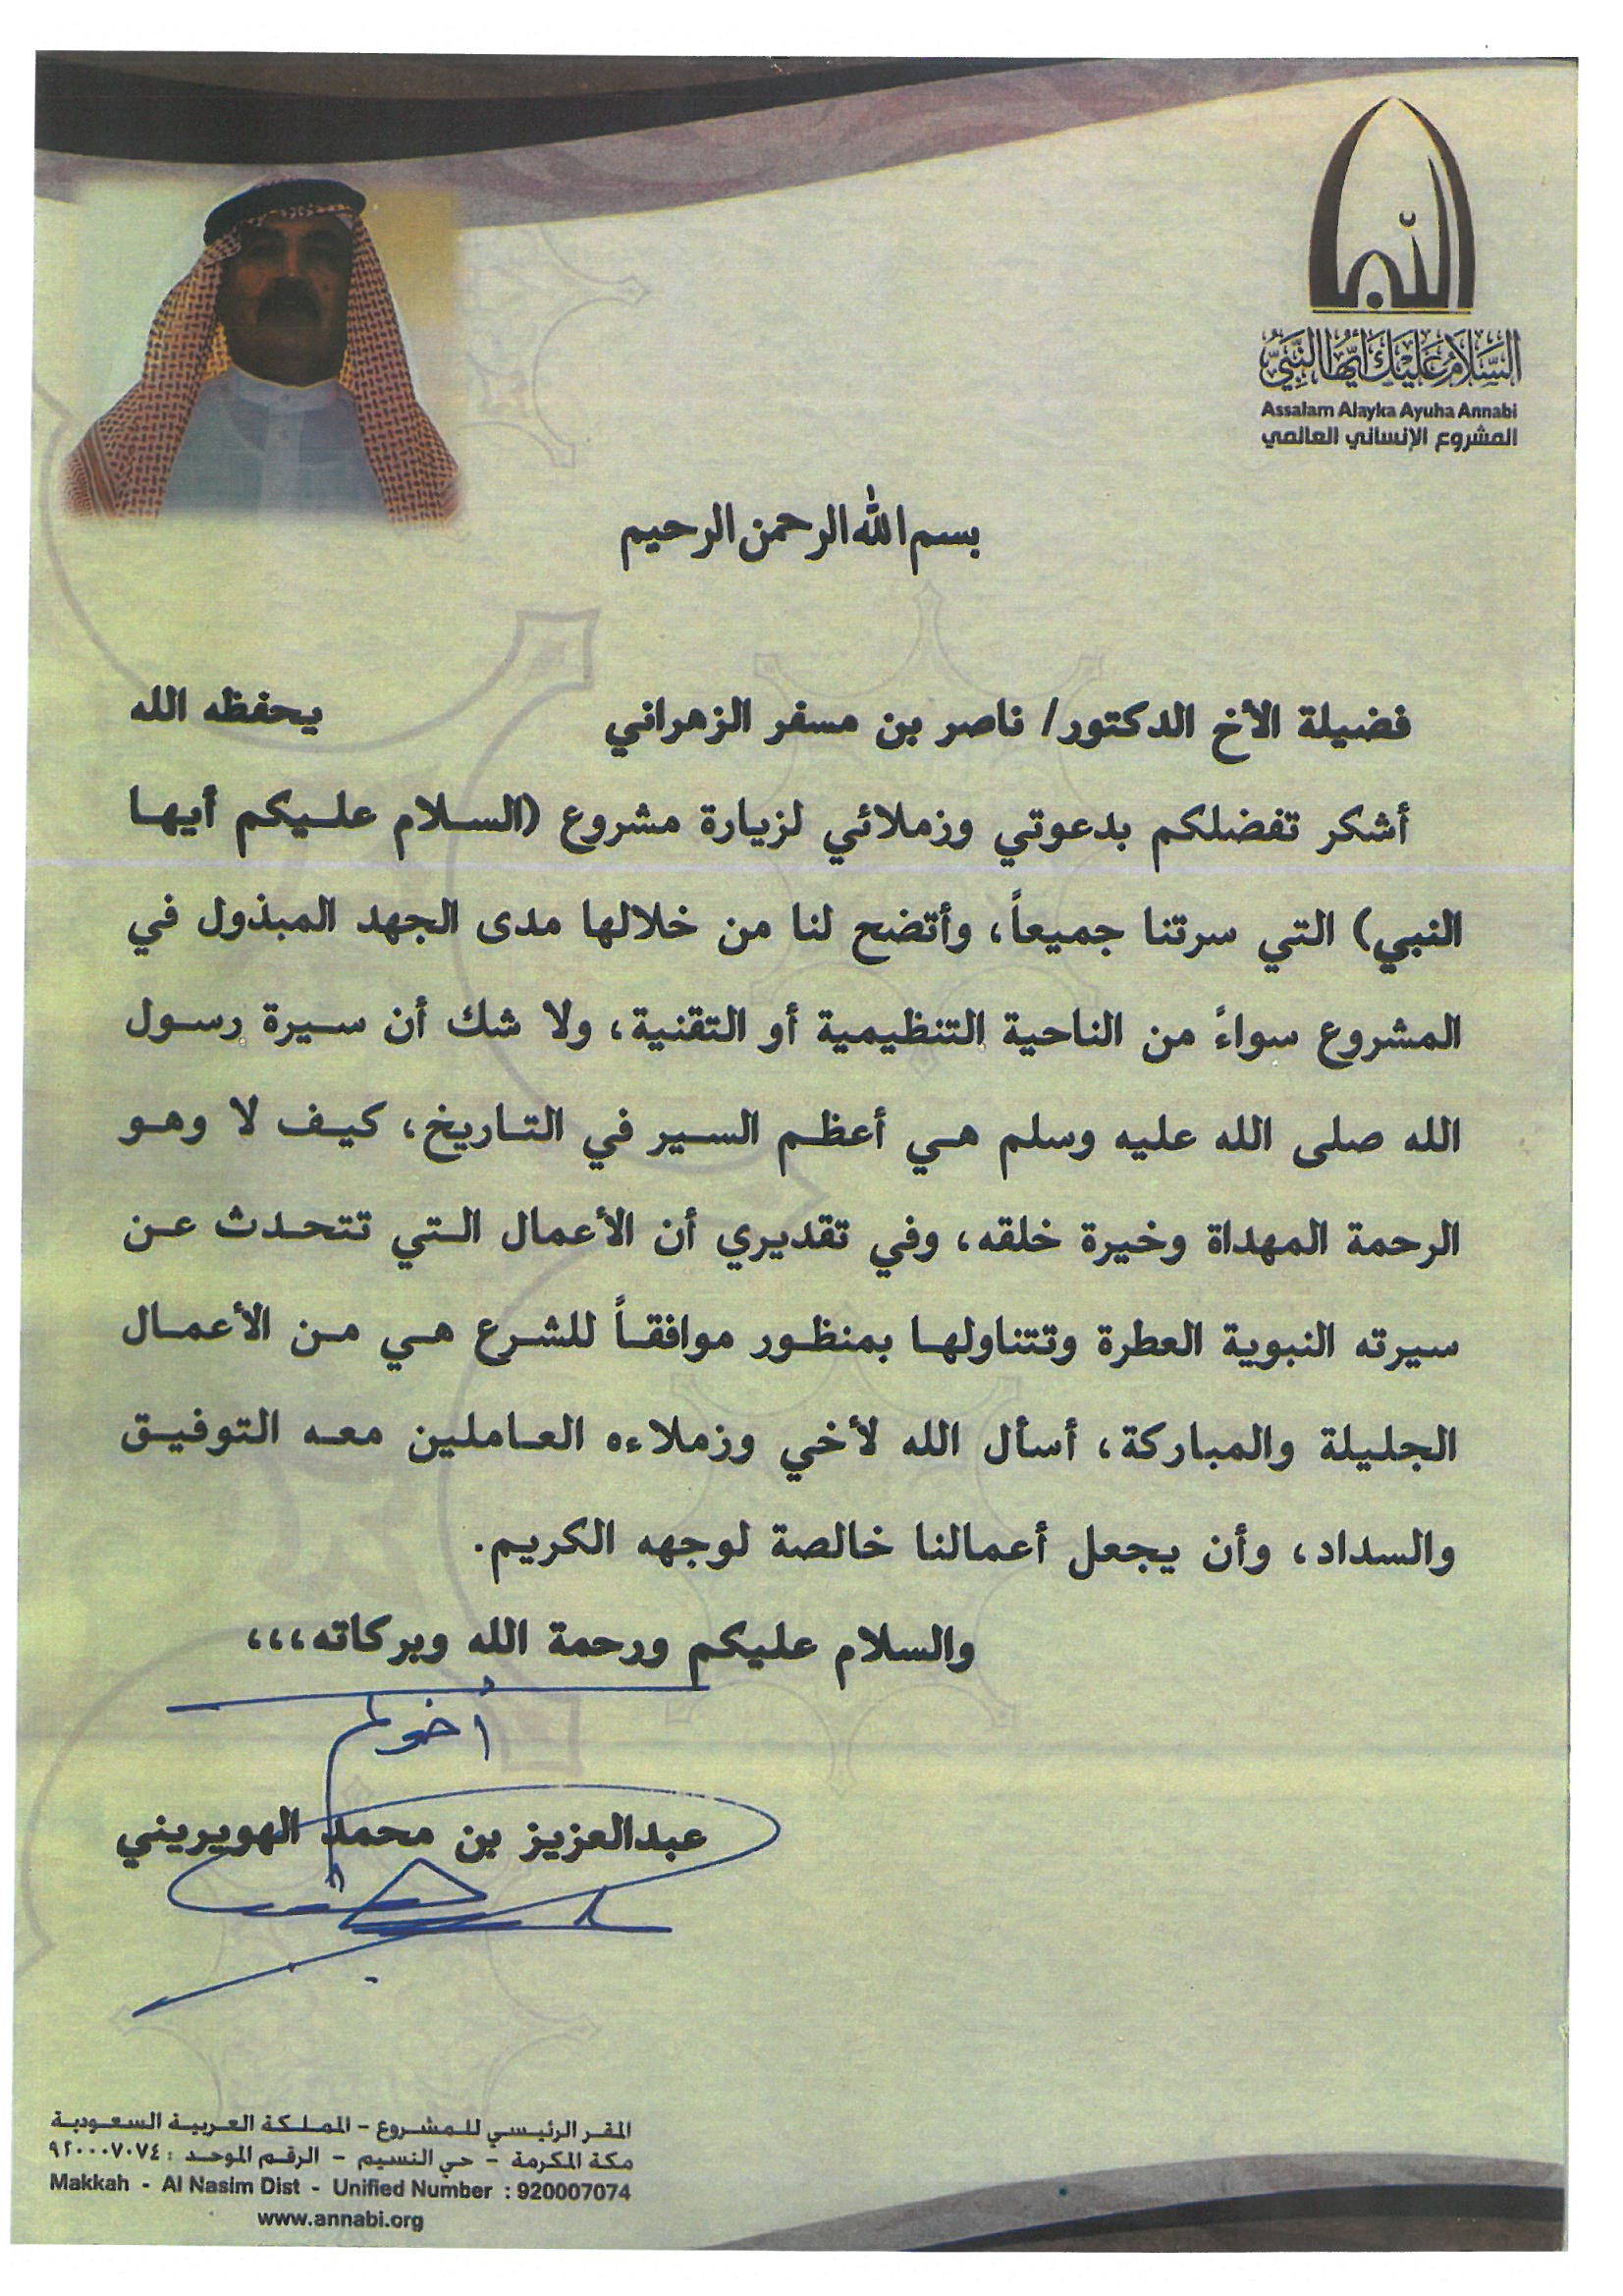 النبي
السَّلَامُ عَلَيْكَ أَيُّهَا النَّبِيُّ
Assalam Alayka Ayuha Annabi
المشروع الإنساني العالمي
بسم الله الرحمن الرحيم
فضيلة الأخ الدكتور/ ناصر بن مسفر الزهراني يحفظه الله
أشكر تفضلكم بدعوتي وزملائي لزيارة مشروع (السلام عليكم أيها
النبي) التي سرتنا جميعاً، وأتضح لنا من خلالها مدى الجهد المبذول في
المشروع سواءً من الناحية التنظيمية أو التقنية، ولا شك أن سيرة رسول
الله صلى الله عليه وسلم هي أعظم السير في التاريخ، كيف لا وهو
الرحمة المهداة وخيرة خلقه، وفي تقديري أن الأعمال التي تتحدث عن
سيرته النبوية العطرة وتتناولها بمنظور موافقاً للشرع هي من الأعمال
الجليلة والمباركة، أسأل الله لأخي وزملاءه العاملين معه التوفيق
والسداد، وأن يجعل أعمالنا خالصة لوجهه الكريم.
والسلام عليكم ورحمة الله وبركاته،،،
أخوكم
عبدالعزيز بن محمد الهويريني
المقر الرئيسي للمشروع - المملكة العربية السعودية
مكة المكرمة - حي النسيم - الرقم الموحد : ٩٢٠٠٠٧٠٧٤
Makkah - Al Nasim Dist - Unified Number : 920007074
www.annabi.org